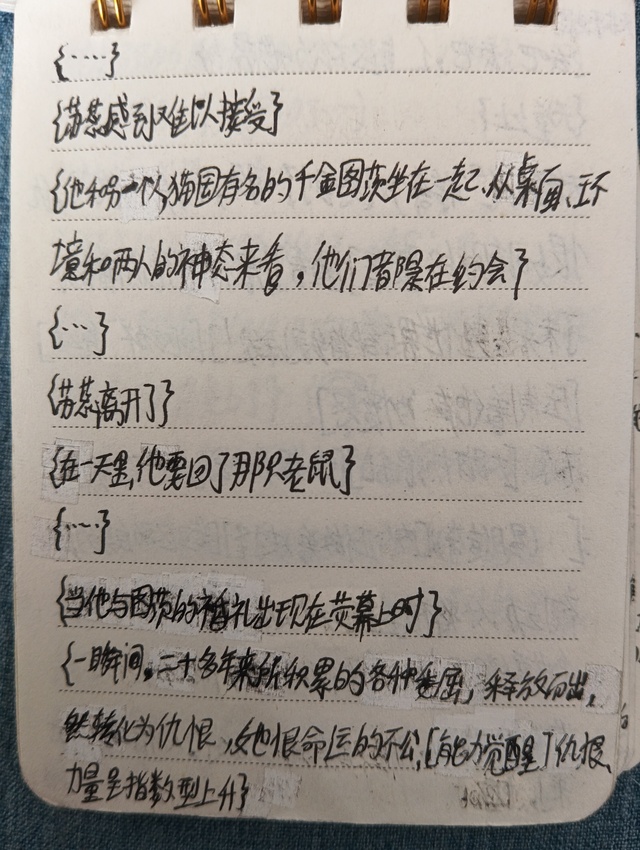 {……}
{苏慕感到难以接受}
{他和另一个猫国有名的千金图茨坐在一起、从桌面、环
境和两人的神态来看，他们者隔在约会了
{…}
{苏慕离开了}
{在一天里,他要回了那只老鼠}
{……}
{当他与图茨的婚礼出现在荧幕上时}
{一瞬间，二十多年来所积累的各种委屈，释放而出，
然转化为仇恨，她恨命运的不公,[能力觉醒]仇恨、
力量呈指数型上升}